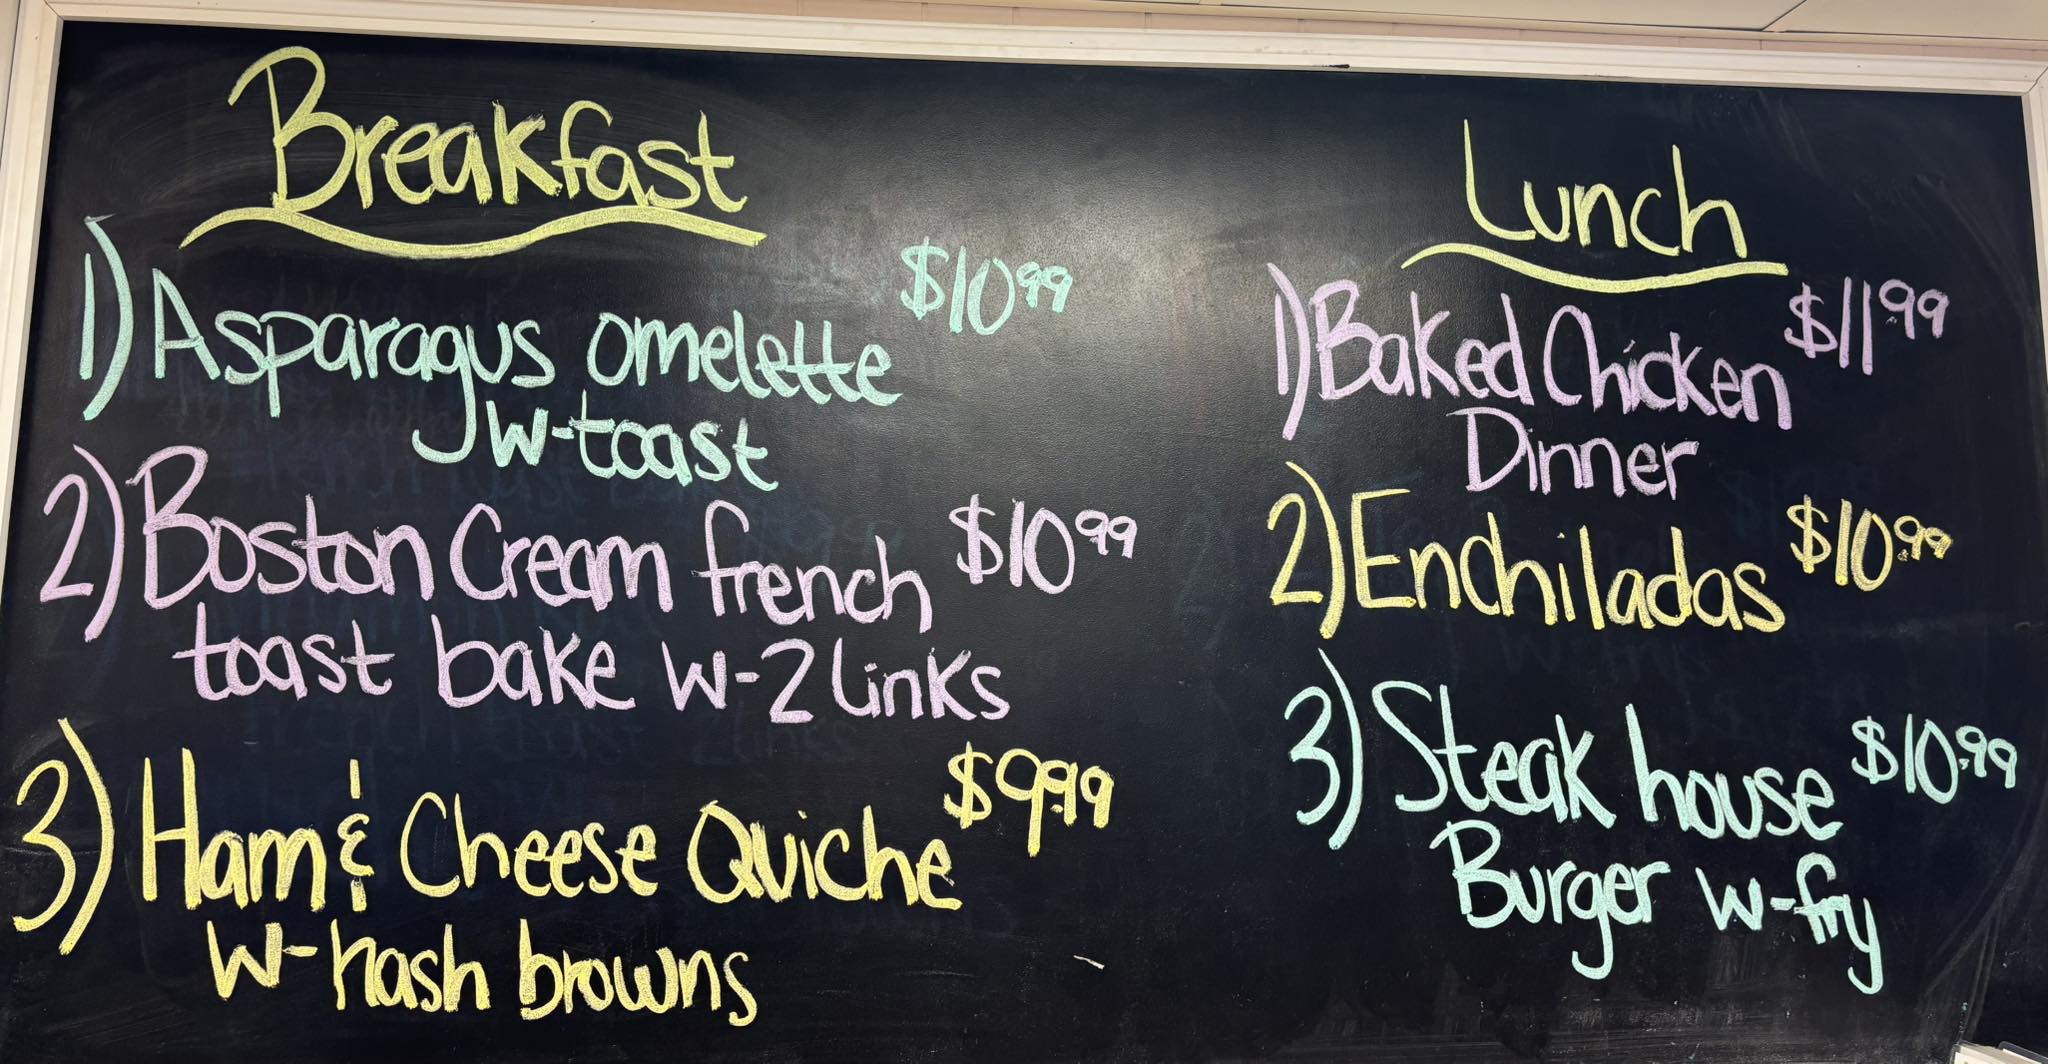 Breakfast
1) Asparagus omelette $10.99
w-toast
2) Boston Cream french $10.99
toast bake w-2 links
3) Ham & Cheese Quiche $9.99
w-hash browns
Lunch
1) Baked Chicken $11.99
Dinner
2) Enchiladas $10.99
3) Steak house $10.99
Burger w-fry